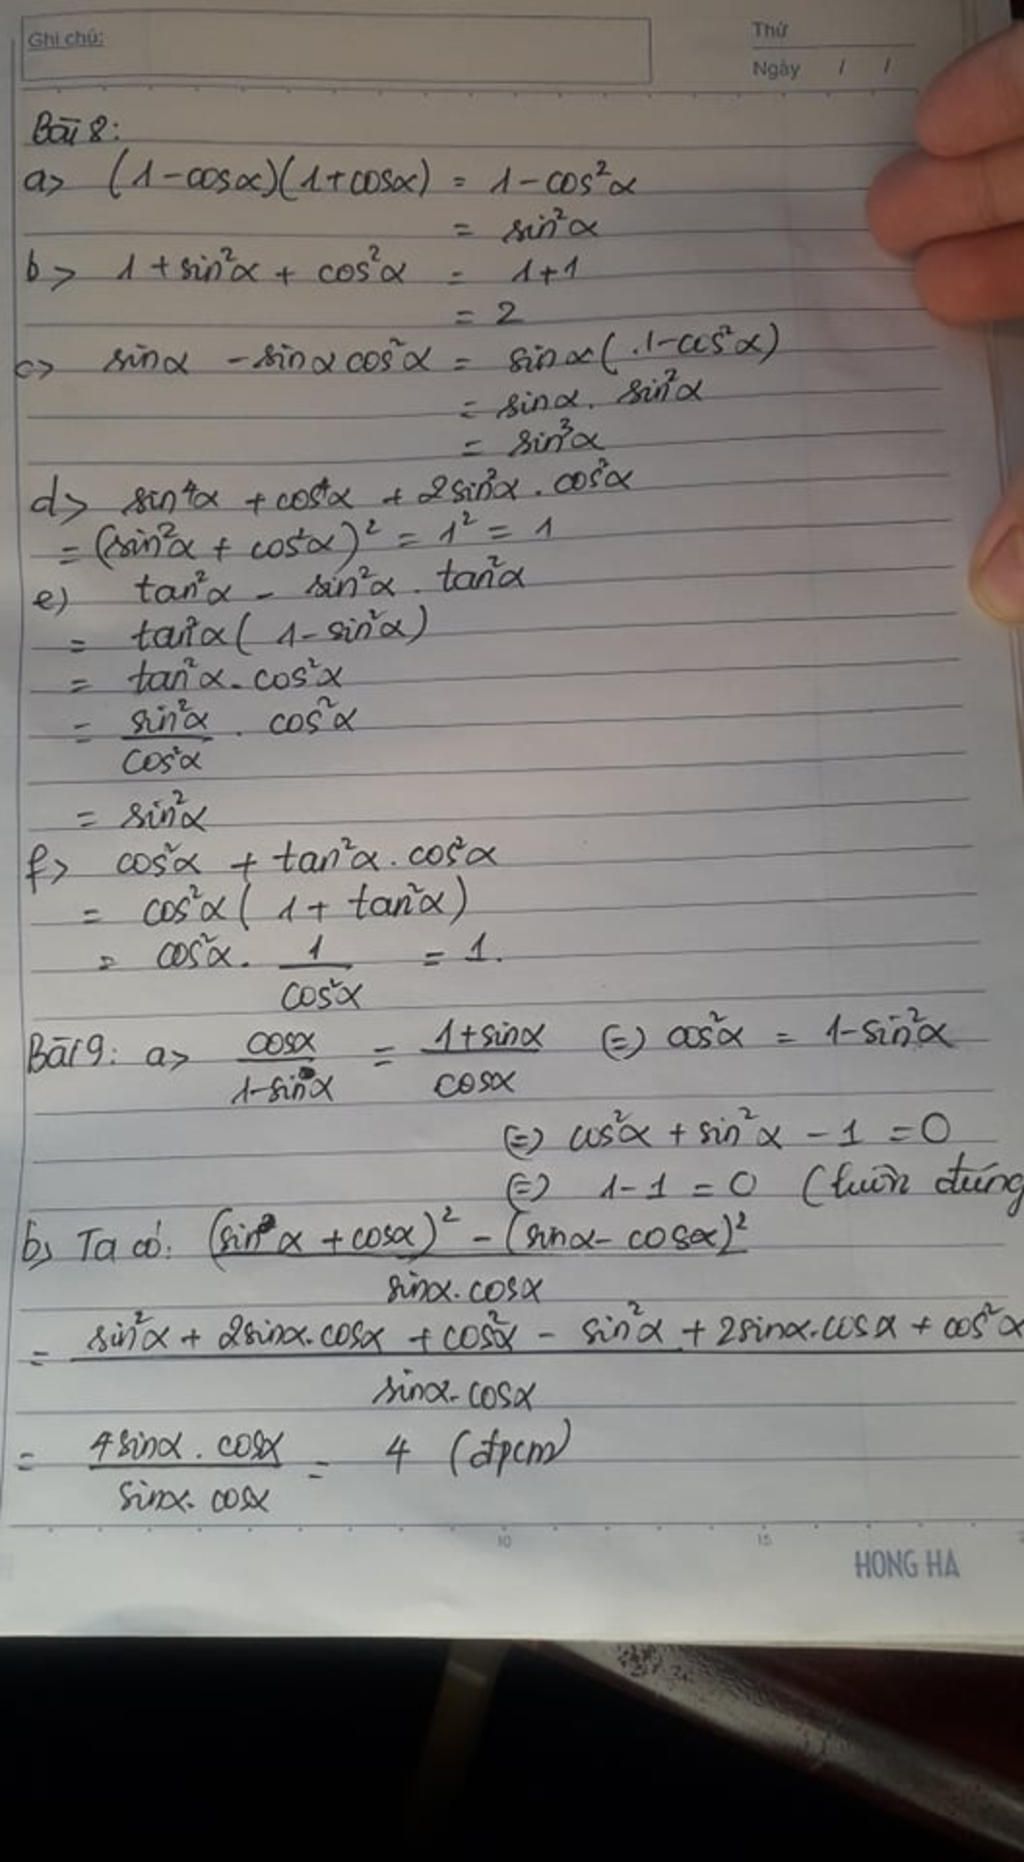 Ghi chú:
Thứ
Ngày / /
Bài 8:
a> (1-cosα)(1+cosα) = 1-cos²α
= sin²α
b> 1+sin²α + cos²α = 1+1
= 2
c> sinα - sinα cos²α = sinα(1-cos²α)
= sinα. sin²α
= sin³α
d> sin⁴α + cos⁴α + 2sin²α.cos²α
= (sin²α + cos²α)² = 1² = 1
e) tan²α - sin²α. tan²α
= tan²α(1-sin²α)
= tan²α.cos²α
= sin²α/cos²α . cos²α
= sin²α
f> cos²α + tan²α.cos²α
= cos²α(1+ tan²α)
= cos²α. 1/cos²α = 1.
Bài 9: a> cosα/1-sinα = 1+sinα/cosα (=) cos²α = 1-sin²α
(=) cos²α + sin²α - 1 = 0
(=) 1-1 = 0 (luôn đúng
b, Ta có: (sinα + cosα)² - (sinα - cosα)²/sinα.cosα
= sin²α + 2sinα.cosα + cos²α - sin²α + 2sinα.cosα + cos²α/sinα.cosα
= 4sinα.cosα/sinα.cosα = 4 (đpcm)
10 15
HONG HA